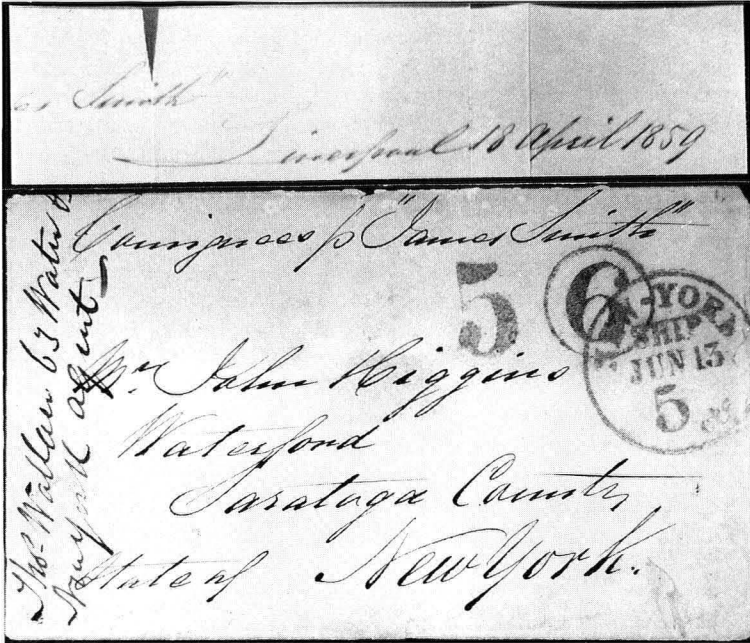 es Smith"
Liverpool 18 April 1859
Consignees p "James Smith"
5 6
NEW-YORK
SHIP
JUN 13
5 cts
Mr. John Higgins
Waterford
Saratoga County
State of New York.
Thos. Wallace 63 Water St
New York agent